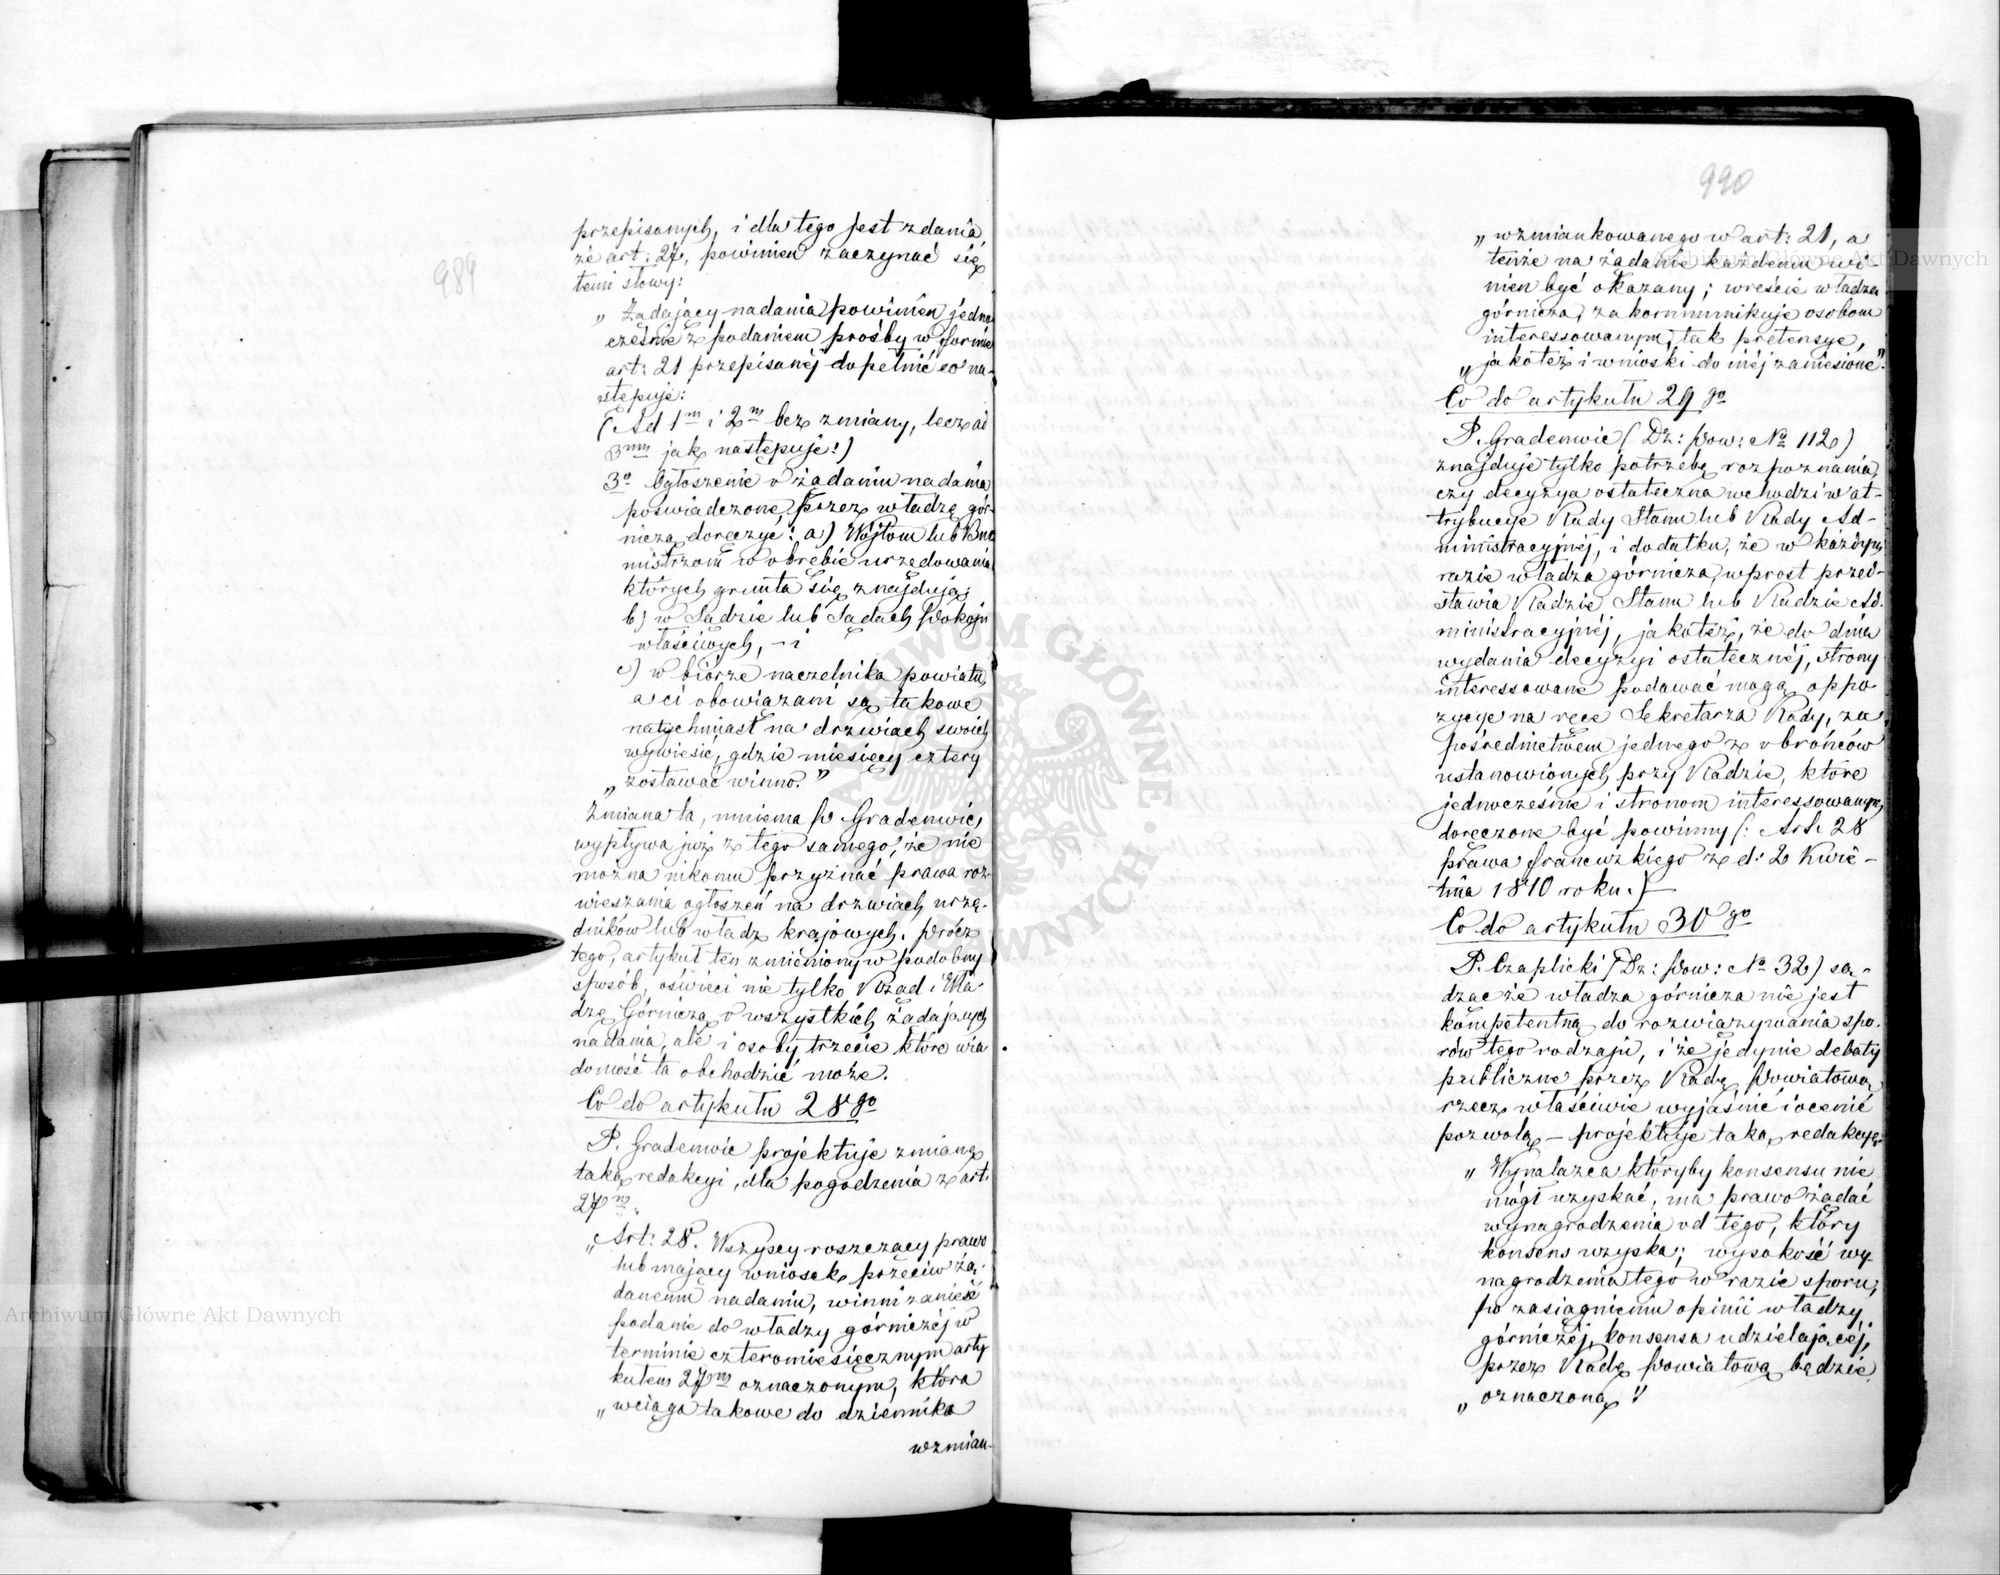 989
przepisanych, i dla tego jest zdania
że art: 27, powinien zaczynać się
temi słowy:
„Żądający nadania powinien jedno
cześnie z podaniem prośby w formie
art: 21 przepisanéj dopełnić co na-
stępuje:
(Ad 1m i 2m bez zmiany, lecz ad
3m jak następuje:)
3o Ogłoszenie o żądaniu nadania
poświadczone przez władzę gór-
niczą doręczyć: a) Wójtom lub Bur
mistrzom w obrębie urzędowania
których grunta się znajdują;
b) w Sądzie lub Sądach Pokoju
właściwych, – i
c) w biórze naczelnika powiatu,
a ci obowiązani są takowe
natychmiast na drzwiach swoich
wywiesić, gdzie miesięcy cztery
„zostawać winno."
Zmiana ta, mniema P. Gradenwic,
wypływa już z tego samego, że nie
można nikomu przyznać prawa roz-
wieszania ogłoszeń na drzwiach urzę-
dników lub władz krajowych. Prócz
tego, artykuł ten zmieniony w podobny
sposób, oświeci nie tylko Rząd i Wła-
dzę Górniczą o wszystkich żądających
nadania, ale i osoby trzecie które wia
domość ta obchodzić może.
Co do artykułu 28go
P. Gradenwic projektuje zmianę
taką redakcyi, dla pogodzenia z art.
27m.
„Art: 28. Wszyscy roszczący prawo
lub mający wniosek przeciw żą-
danemu nadaniu, winni zanieść
podanie do władzy górniczéj w
terminie czteromiesięcznym arty
kułem 27m oznaczonym, która
„wciąga takowe do dziennika
wzmian-
990
„wzmiankowanego w art: 21, a
tenże na żądanie każdemu wi-
nien być okazany; wreście władza
górnicza, zakommunikuje osobom
interessowanym, tak pretensye,
„jakoteż i wnioski do niéj zaniesione".
Co do artykułu 29go
P. Gradenwic (Dz: Pow: No 112)
znajduje tylko potrzebę rozpoznania
czy decyzya ostateczna wchodzi w at-
trybucye Rady Stanu lub Rady Ad-
ministracyjnéj, i dodatku, że w każdym
razie władza górnicza, wprost przed-
stawia Radzie Stanu lub Radzie Ad-
ministracyjnéj, jakoteż, że do dnia
wydania decyzyi ostatecznéj, strony
interessowane podawać mogą oppo-
zycye na ręce Sekretarza Rady, za
pośrednictwem jednego z obrońców
ustanowionych przy Radzie, które
jednocześnie i stronom interessowanym
doręczone być powinny (: Art. 28
prawa francuzkiego z d: 2 Kwie-
tnia 1810 roku.)
Co do artykułu 30go
P. Czaplicki (Dz: Pow: No 32) są-
dząc że władza górnicza nie jest
kompetentną do rozwiązywania spo-
rów tego rodzaju, i że jedynie debaty
publiczne przez Radę Powiatową
rzecz właściwie wyjaśnić i ocenić
pozwolą – projektuje taką redakcyę:
„Wynalazca któryby konsensu nie
mógł uzyskać, ma prawo żądać
wynagrodzenia od tego, który
konsens uzyska; wysokość wy-
nagrodzenia tego w razie sporu,
po zasiągnieniu opinii władzy
górniczéj, konsensa udzielającéj,
przez Radę Powiatową będzie
„oznaczoną"
Archiwum Główne Akt Dawnych
Archiwum Główne Akt Dawnych
ARCHIWUM GŁÓWNE AKT DAWNYCH